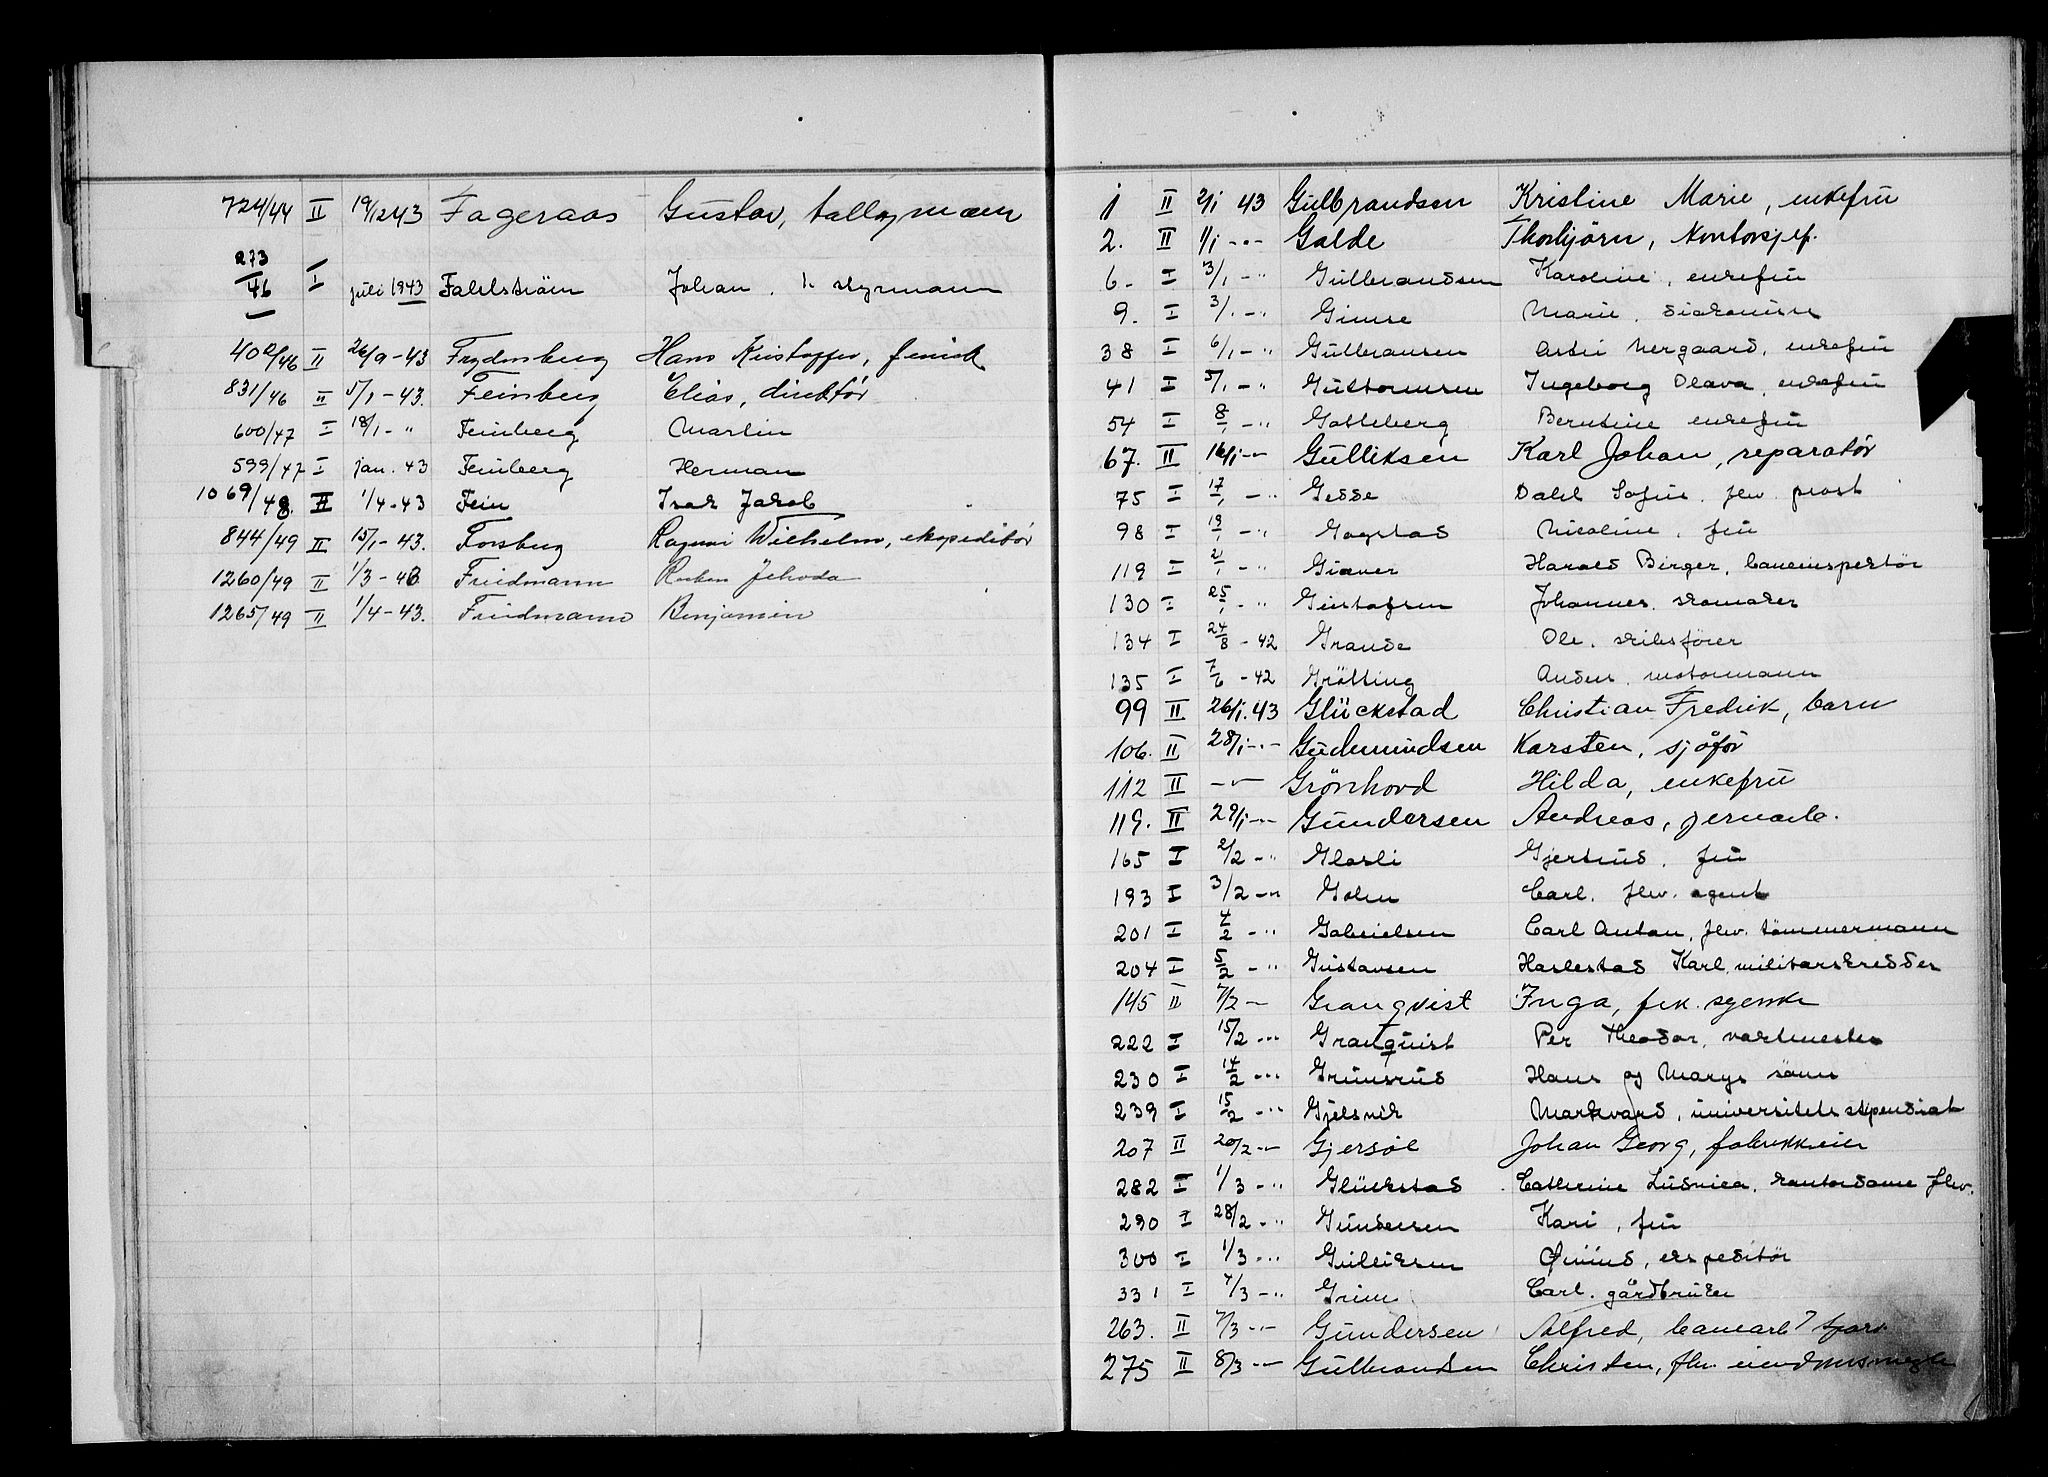 724/44 II 19/12 43 Fageraas Gustav, tallymann
273/46 I juli 1943 Fahlström Johan. styrmann
400/46 II 26/9-43 Frydenberg Hans Kristoffer, fenrik
831/46 II 5/1-43. Feinberg Elias, direktør
600/47 I 18/1-" Feinberg Martin
599/47 I jan. 43 Feinberg Herman
1069/48. II 1/4-43 Fein Isak Jakob
844/49 II 15/1-43. Forsberg Ragnar Wilhelm, ekspeditør
1260/49 II 1/3-43 Friedmann Ruben Jehoda
1265/49 II 1/4-43. Friedmann Benjamin
1 II 2/1 43 Gulbrandsen Kristine Marie, enkefru
2. II 1/1 -"- Galde Thorbjörn, Kontorsjef.
6- I 3/1 -" Gulbrandsen Karoline, enkefru
9. I 3/1 -" Gimse Marie. diakonisse
38 I 6/1 -" Gulbransen Astri Nergaard, enkefru
41 I 5/1 -" Guttormsen Ingeborg Olava, enkefru
54 I 8/1 -" Gotteberg Berntine enkefru
67. II 16/1 -"- Gulliksen Karl Johan, reparatør
75 I 17/1 -" Gedde Dahl Sofus. fhv. prost
98 I 19/1 -" Gogstad Nicoline, fru
119 I 2/1 -" Giæver Harald Birger, baneinspektör
130 I 25/1 -" Gustafsen Johannes. skomaker
134 I 24/8 - 42 Grande Ole. skibsförer
135 I 7/6 - 42 Grötting Anders. motormann
99 II 26/1. 43 Glückstad Christian Fredrik, barn
106. II 28/1 -"- Gudmundsen Karsten, sjåför
112 II -"- Grönhovd Hilda, enkefru
119. II 29/1 -"- Gundersen Andreas, jernarb.
165 I 2/2 -" Glasli Gjertrud. fru
193 I 3/2 -" Golen Carl. fhv. agent
201 I 4/2 -" Gabrielsen Carl Anton, fhv. tömmermann
204 I 5/2 -" Gustavsen Harlestad Karl, militærskredder
145 II 7/2 - Granqvist Inga, frk. syerske
222 I 15/2 -" Granquist Per Theodor, vaktmester
230 I 14/2 -" Grünsrud Hans og Marys sønn
239 I 15/2 -" Gjelsvik Markvard, universitetsstipendiat
207 II 20/2 -" Gjersöe Johan Georg, fabrikkeier
282 I 1/3 -" Glückstad Cathrine Ludovica, kontordame fhv.
290 I 28/2 -" Gundersen Kari, fru
300 I 1/3 -" Gulliksen ekspeditør
331 I 4/3 -" Grim Carl. gårdbruker
263. II 7/3 -" Gundersen Alfred, banearb
275 II 8/3 -" Gulbrandsen Christen, fhv. eiendomsmegler